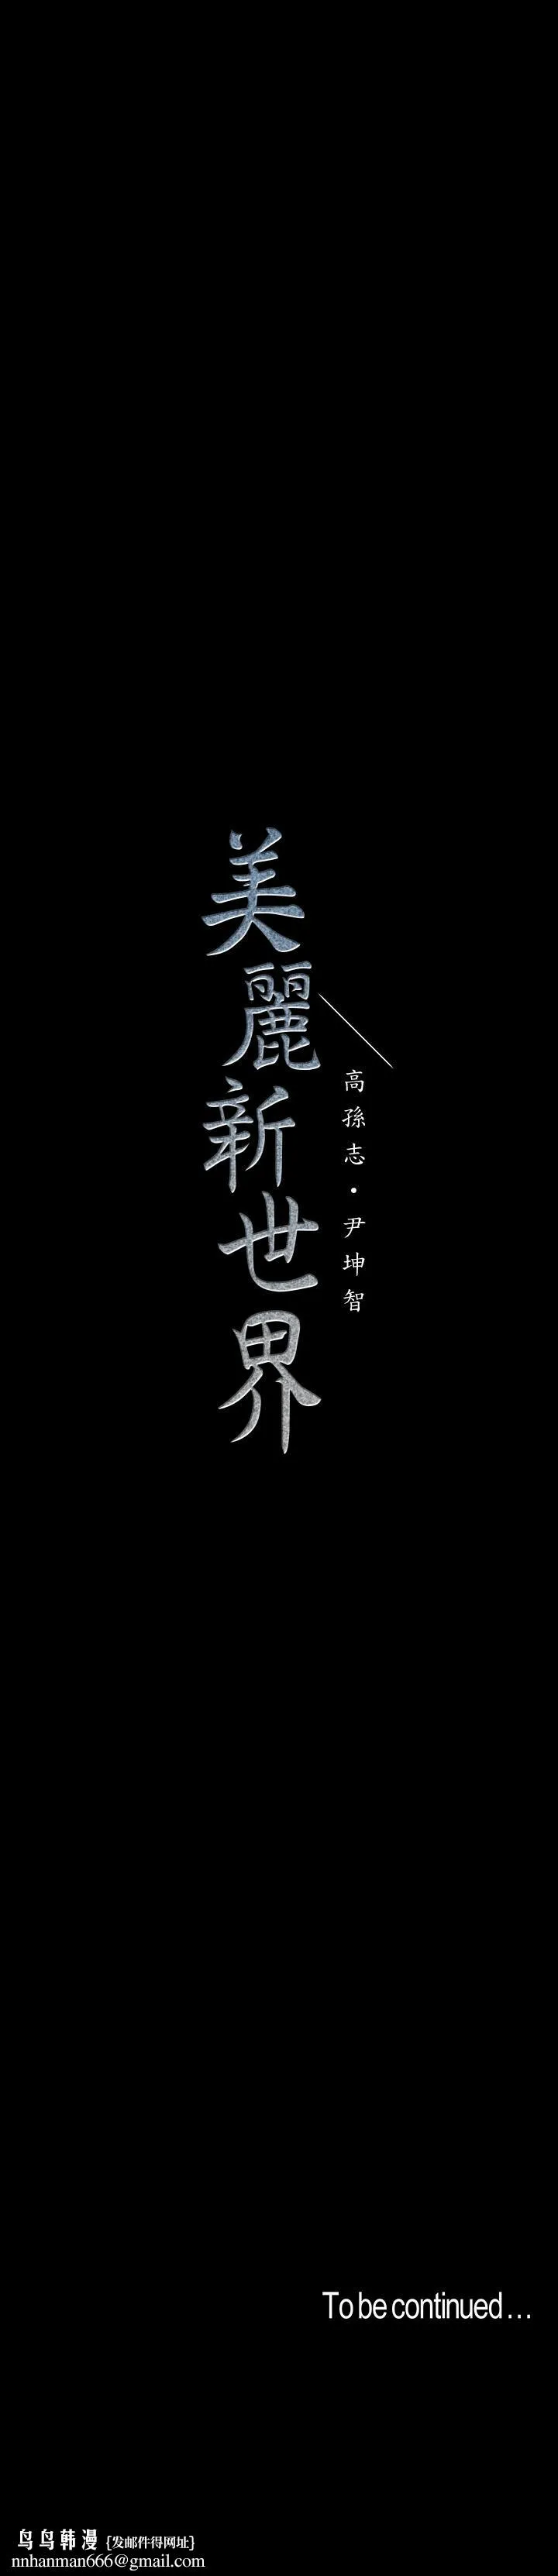 美麗新世界
高孫志・尹坤智
To be continued…
鸟鸟韩漫 {发邮件得网址}
nnhanman666@gmail.com